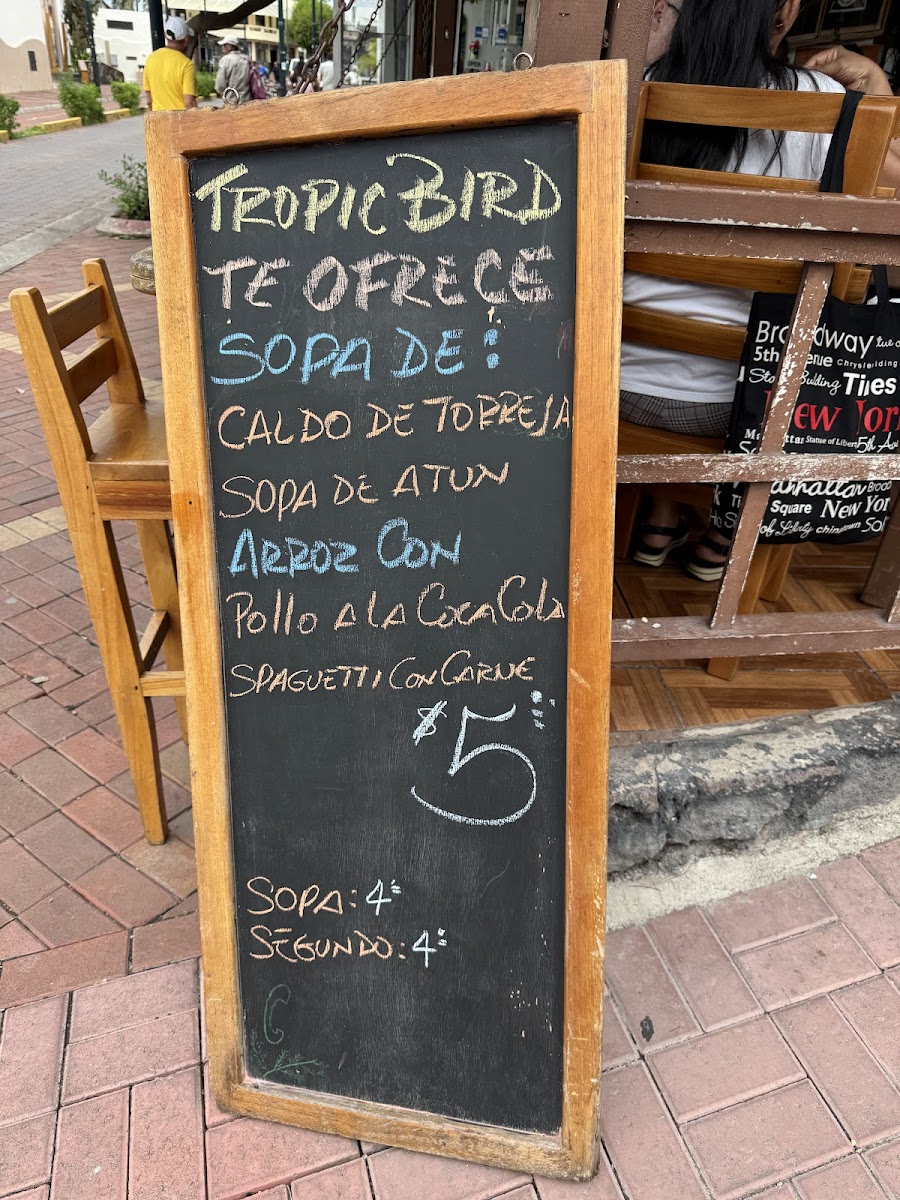 TROPIC BIRD
TE OFRECE
SOPA DE:
CALDO DE TORREJA
SOPA DE ATUN
ARROZ CON
Pollo A LA COCA COLA
SPAGUETTI CON CARNE
$5
SOPA: 4
SEGUNDO: 4
C
Broadway
5th Avenue Chrysler Building
Building Times
New York
Statue of Liberty 5th
Manhattan Broadway
Square New York
of Liberty chinatown